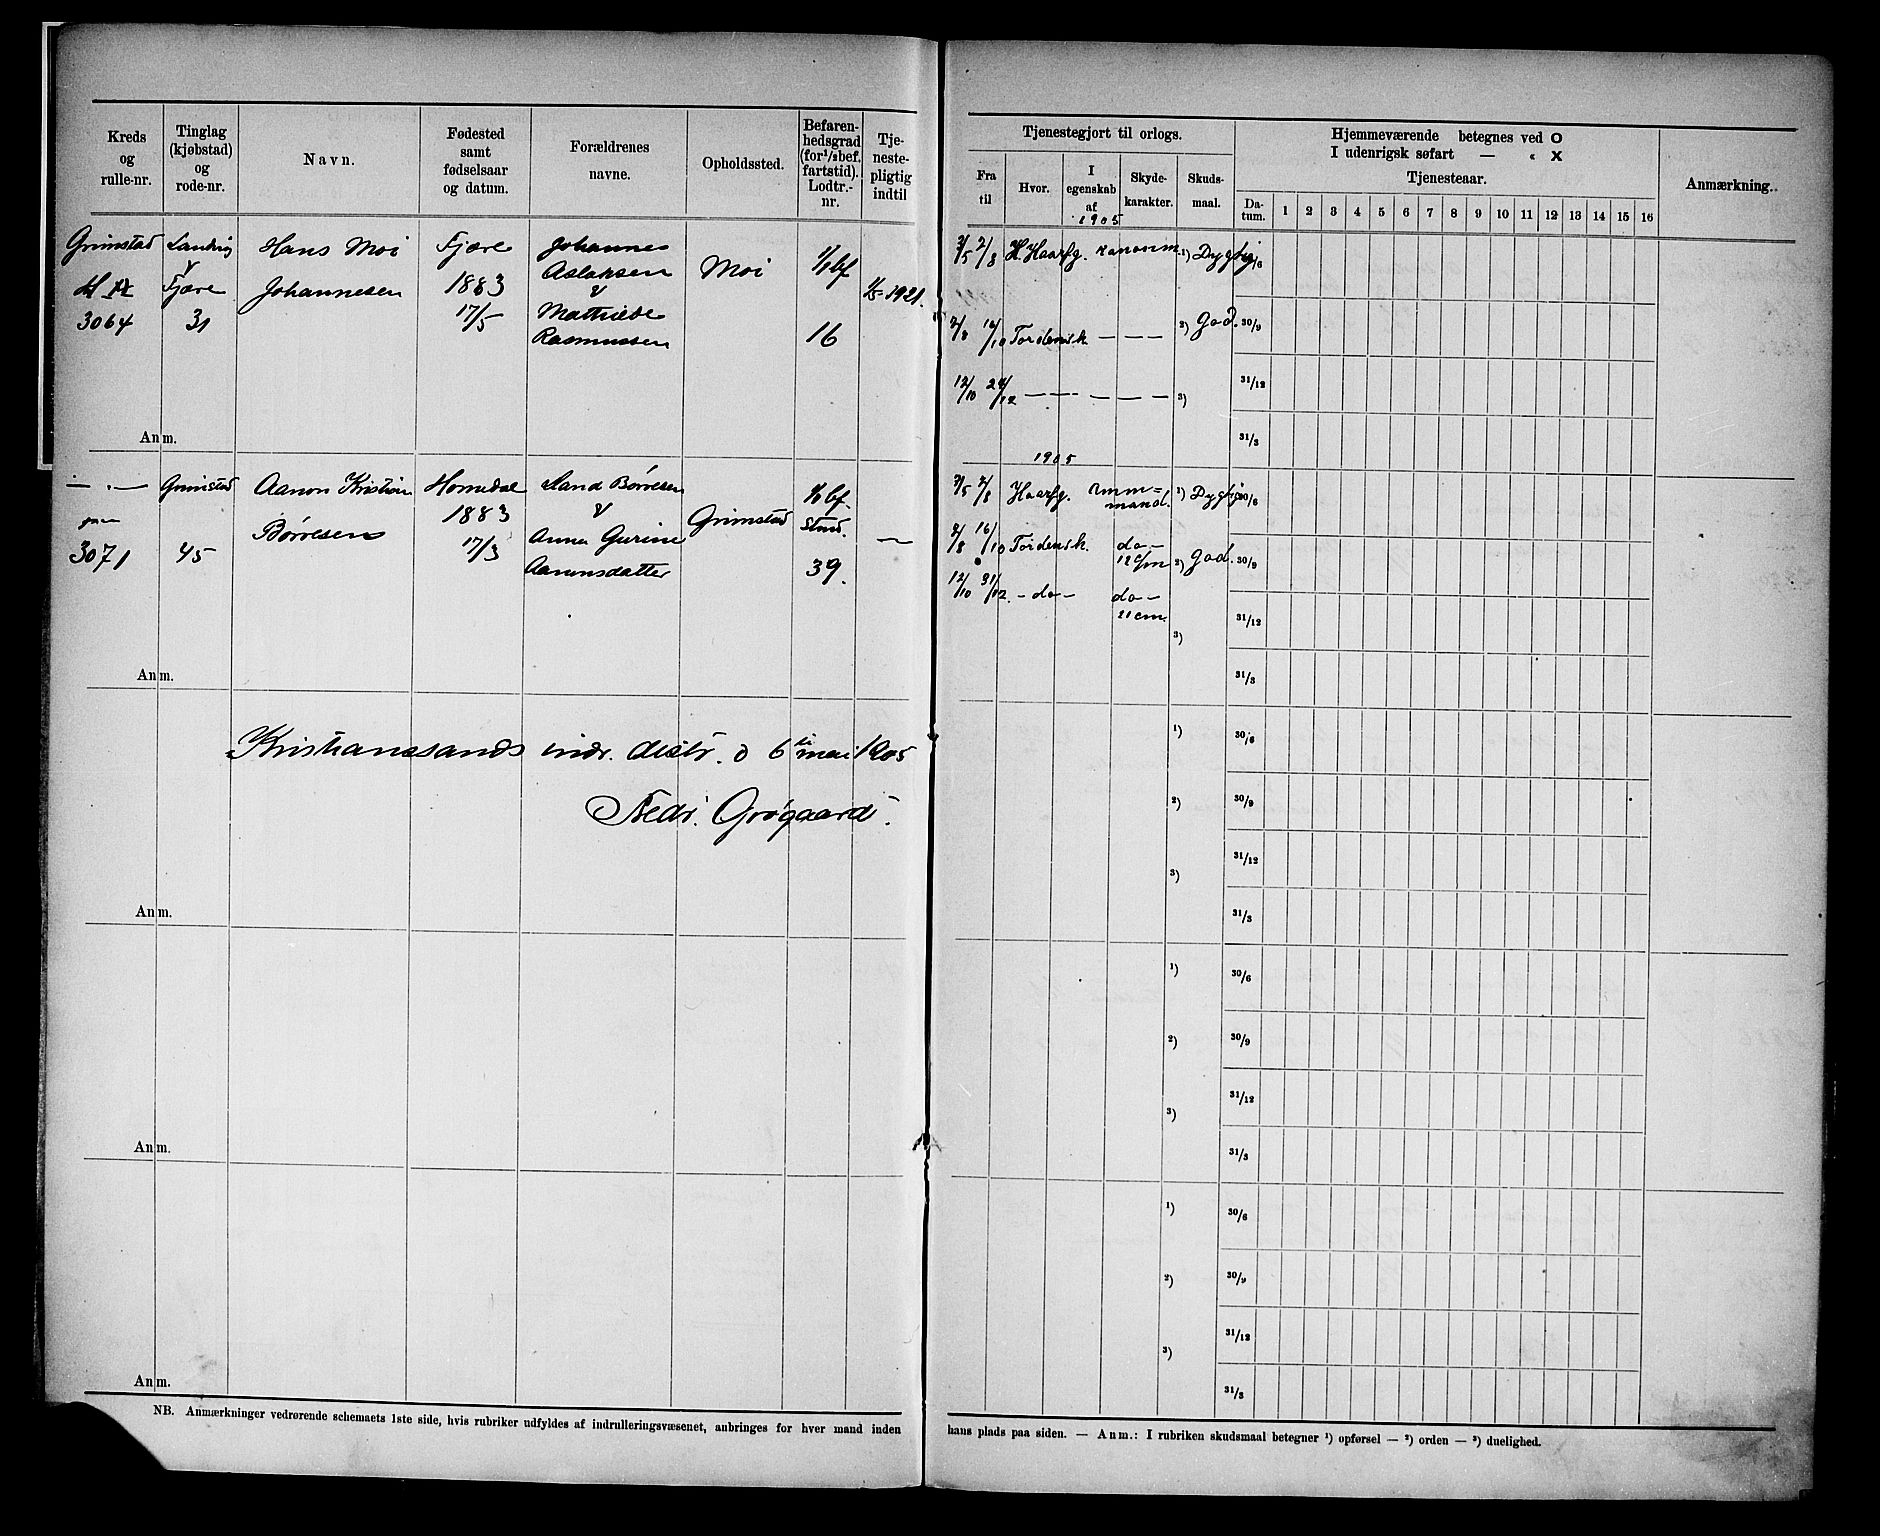 Kreds og rulle-nr.
Tinglag (kjøbstad) og rode-nr.
Navn.
Fødested samt fødselsaar og datum.
Forældrenes navne.
Opholdssted.
Befaren-hedsgrad (for ½bef. fartstid). Lodtr.-nr.
Tje-neste-pligtig indtil
Grimstad
3064
Landvig
Fjære
31
Hans Moi
Johannesen
Fjære
1883
17/5
Johannes
Aslaksen
Rasmussen
Moi
1/1 bf
16
1/5-1921.
Anm.
3071
Grimstad
45
Aanon Kristian
Børresen
Homedal
1883
17/3
Børresen
Anna Gurine
Aanonsdatter
Grimstad
1/1 bf.
39.
Anm.
Kristianssands indr. distr. d 6 mai 1905
Fredr. Grøgaard.
Anm.
Anm.
Anm.
NB. Anmærkninger vedrørende schemaets 1ste side, hvis rubriker udfyldes af indrulleringsvæsenet, anbringes for hver mand inden
Tjenestegjort til orlogs.
Hjemmeværende betegnes ved O
I udenrigsk søfart — « X
Tjenesteaar.
Anmærkning.
Fra til
Hvor.
I egenskab af
Skyde-karakter.
Skuds-maal.
Da-tum.
1 2 3 4 5 6 7 8 9 10 11 12 13 14 15 16
1905
2/8 H. Haarfg. kanonim. 1) Dygtig 30/6
2/8 Tordensk. — — — 2) God. 30/9
12/10 24/12 — — — — — — 3) 31/12
31/3
1905
2/8 Haarfg. 1) Dygtig 30/6
mand.
2/8 16/10 Tordensk. do 2) God. 30/9
12 c/m
12/10 31/12 - do - do - 31/12
21 cm.
3)
31/3
1) 30/6
2) 30/9
3) 31/12
31/3
1) 30/6
2) 30/9
3) 31/12
31/3
1) 30/6
2) 30/9
3) 31/12
31/3
hans plads paa siden. — Anm.: I rubriken skudsmaal betegner 1) opførsel — 2) orden — 3) duelighed.